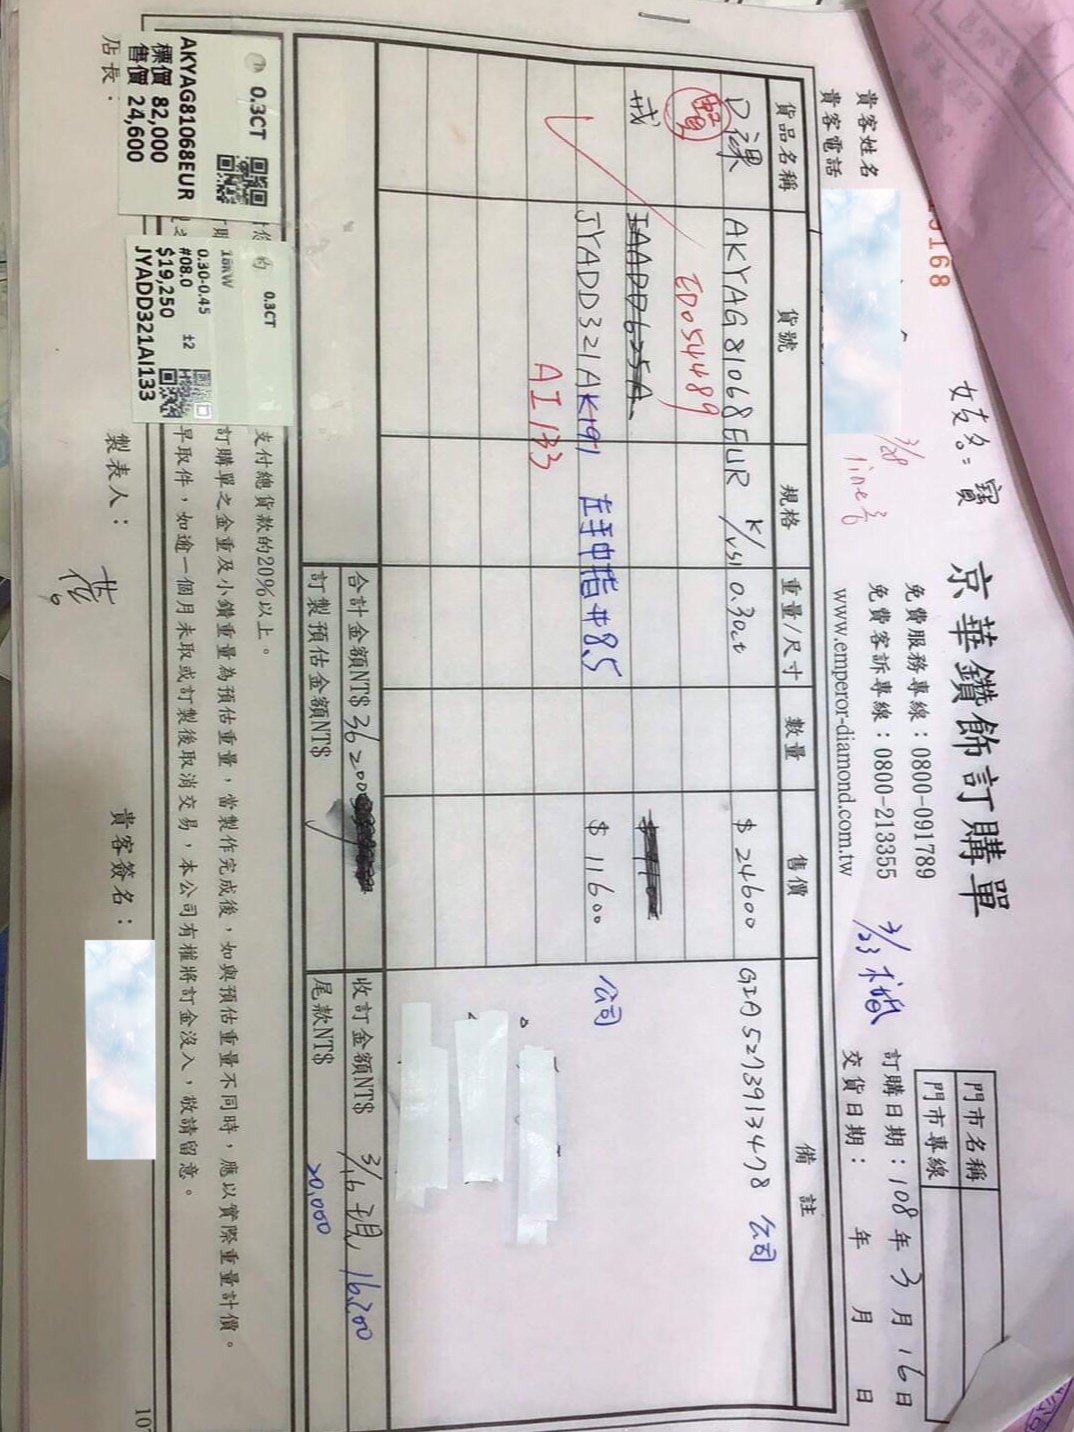 女友名：寶
京華鑽飾訂購單
門市名稱
門市專線
免費服務專線：0800-091789
免費客訴專線：0800-213355
www.emperor-diamond.com.tw
貴客姓名
貴客電話
3/28
line
3/23
訂購日期：108年3月16日
交貨日期： 年 月 日
貨品名稱 貨號 規格 重量/尺寸 數量 售價 備註
AKYAG81068EUR K/VS1 0.30ct $24600 GIA5273913478 公司
ED054489
戒
JYADD321AK191 左手中指#8.5 $11600 公司
AI133
合計金額NT$ 36200
訂製預估金額NT$
收訂金額NT$ 3/16 現 16,200
尾款NT$ 20,000
支付總貨款的20%以上。
訂購單之金重及小鑽重量為預估重量，當製作完成後，如與預估重量不同時，應以實際重量計價。
早取件，如逾一個月未取或訂製後取消交易，本公司有權將訂金沒入，敬請留意。
店長：
製表人：
貴客簽名：
0.3CT
AKYAG81068EUR
標價 82,000
售價 24,600
0.3CT
18KW
0.30-0.45
#08.0 ±2
$19,250
JYADD321AI133